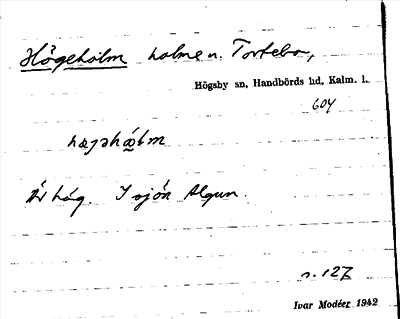 Högeholm holme n. Tortebo,
Högsby sn, Handbörds hd, Kalm. l.
604
Är hög. I sjön Algun.
s. 127
Ivar Modéer 1942